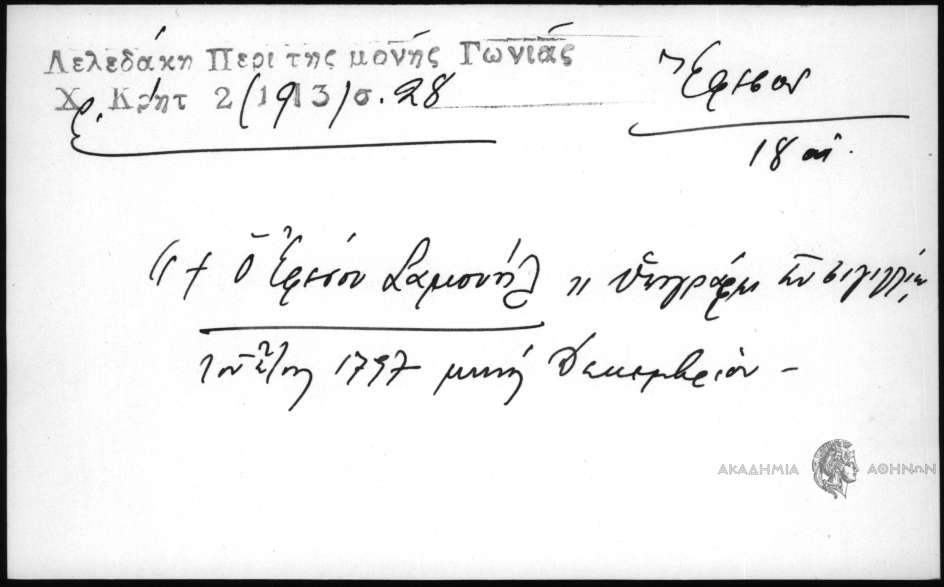 Λελεδάκη Περι της μονής Γωνιάς
Χρ. Κρήτ 2 (1913) σ. 28
Ἔρεσον
18 αἰ.
"+ Ὁ Ἐρέσου Σαμουὴλ" ὑπογράφει ἐν σιγιλλίῳ
τοῦ ἔτους 1797 μηνὸς Δεκεμβρίου –
ΑΚΑΔΗΜΙΑ ΑΘΗΝΩΝ